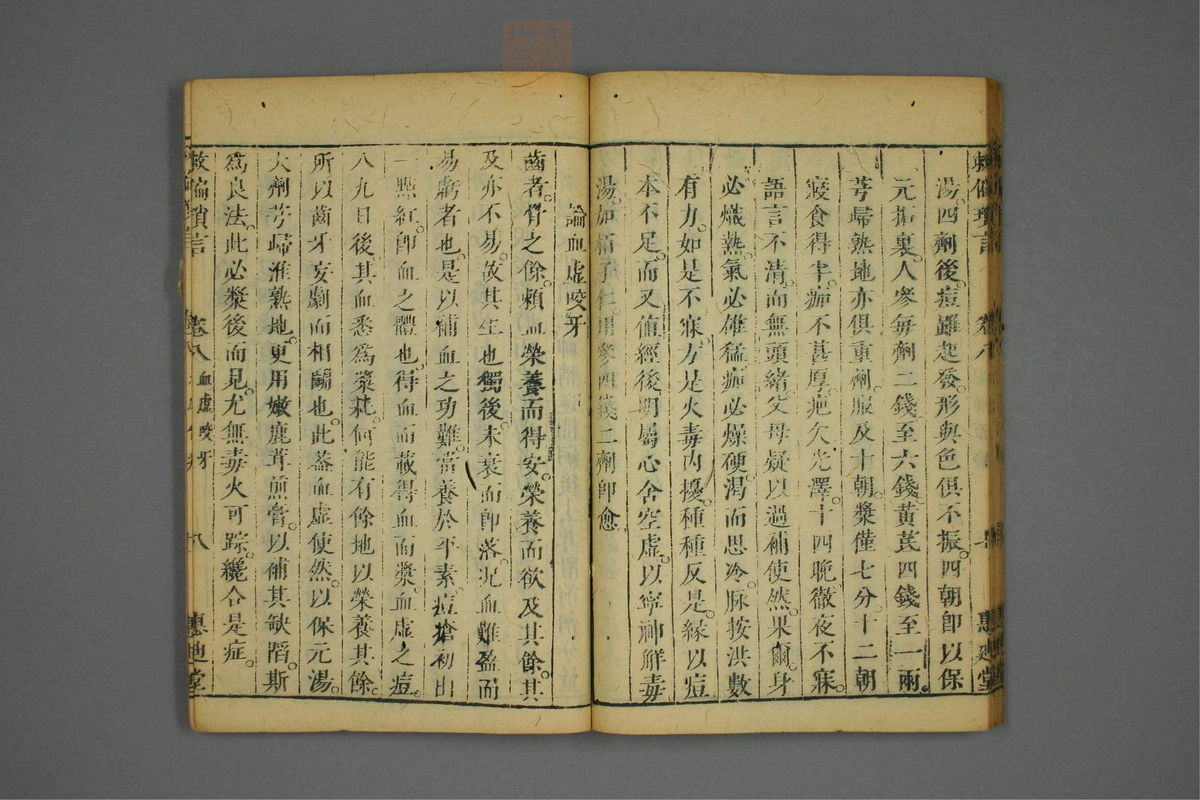 救偏瑣言 卷八 七 惠迪堂
湯。四劑後。痘雖起發。形與色俱不振。四朝即以保
元拓裏。人參每劑二錢至六錢黃芪四錢至一兩。
芎歸熟地亦俱重劑。服及十朝。漿僅七分。十二朝
寢食得半。痂不甚厚。疤欠光澤。十四晚徹夜不寐。
語言不清。而無頭緒。父母疑以過補使然。果爾。身
必熾熱。氣必雄猛。痂必燥硬。渴而思冷。脉按洪數
有力。如是不寐。方是火毒內擾。種種反是。緣以痘
本不足。而又值經後。明屬心舍空虛。以寧神解毒
湯。加棗子仁。用參四錢。二劑即愈。
論血虛咬牙
齒者。骨之餘。賴血榮養而得安。榮養而欲及其餘。其
及亦不易。故其生也獨後。未衰而即落。况血難盈而
易虧者也。是以補血之功難。當養於平素。痘搶初出
一點紅。即血之體也。得血而載得血而漿。血虛之痘。
八九日後。其血悉為漿耗。何能有餘地以榮養其餘。
所以齒牙妄劇而相鬭也。此葢血虛使然。以保元湯。
大劑芎歸准熟地。更用嫩鹿茸煎膏。以補其缺陷。斯
為良法。此必漿後而見。尤無毒火可踪。纔合是症。
救偏瑣言 卷八 血虛咬牙 八 惠迪堂